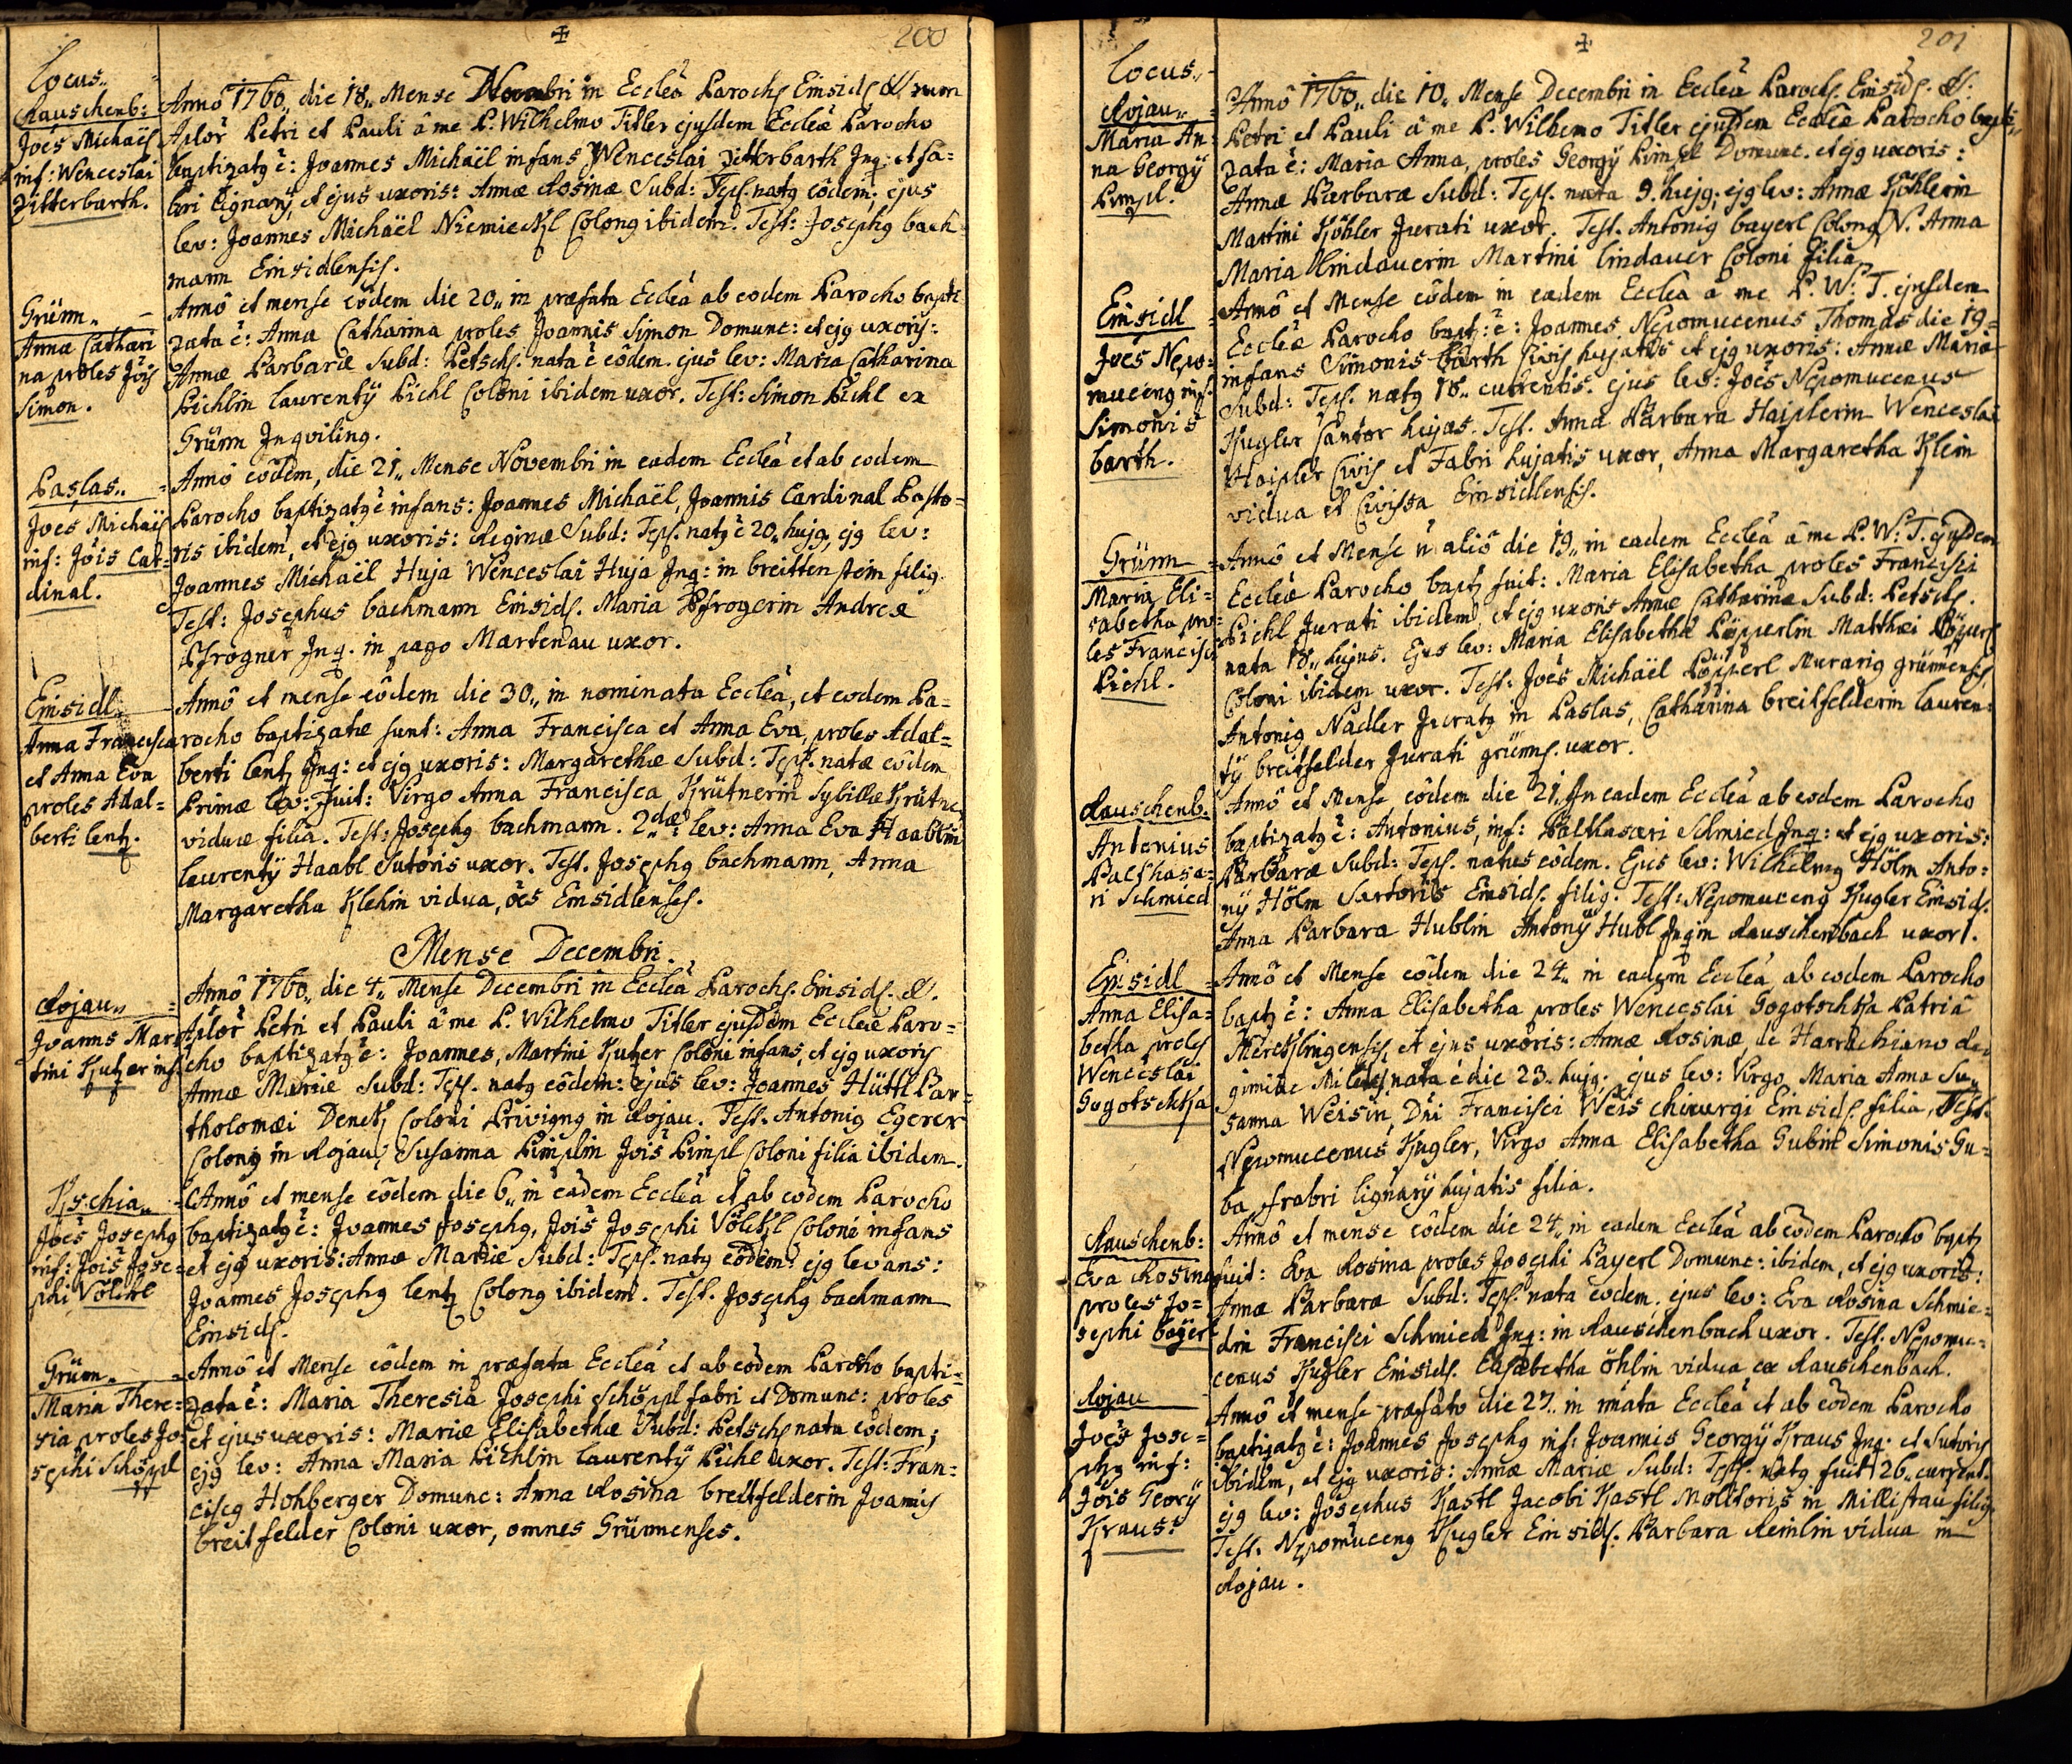 200
Locus„
Rauschenb:
Joēs Michaël
inf: Wenceslai
Zitterbarth.
Annô 1760„ die 18„ Mense Novembri in Ecclêa Paroch. Einsidl. SS. rum
Aplor̃ Petri et Pauli â me P. Wilhelmo Titler ejusdem Ecclêae Parocho
baptizatg ē: Joannes Michaël infans Wenceslai Zitterbarth Inq: et fa=
bri lignarÿ, et ejus uxoris: Annæ Rosinæ Subd: Tepl. natg eôdem: ejus
lev: Joannes Michaël Colong ibidem. Test: Josephg bach
mann Einsidlensis.
Grünn„
Anna Cathari
na proles Jōis
Simon.
Annô et mense eôdem die 20„ in præfata Ecclêa ab eodem Parocho bapti
zata ē: Anna Catharina proles Joannis Simon Domunc: et ejg uxoris:
Annæ Barbaræ Subd: Petsch. nata ē eôdem. ejus lev: Maria Catharina
Pichlin Laurentÿ Pichl Coloni ibidem uxor. Test: Simon Pichl ex
Grünn Inquiling.
Paslas„
Joēs Michaël
inf: Jōis Car=
dinal.
Annô eôdem, die 21„ Mense Novembri in eadem Ecclêa et ab eodem
Parocho baptizatg ē infans: Joannes Michaël, Joannis Cardinal Pasto=
ris ibidem, et ejg uxoris: Reginæ Subd: Tepl. natg ē 20„ hujg, ejg lev:
Joannes Michaël Huja Wenceslai Huja Inq: in breittenstein filig.
Test: Josephus bachmann Einsidl. Maria Pfrognerin Andreæ
Pfrogner Inq. in pago Martenau uxor.
Einsidl.
Anna Francisca
et Anna Eva
proles Adal=
berti lentz.
Annô et mense eôdem die 30„ in nominata Ecclêa, et eodem Pa=
rocho baptizatæ sunt: Anna Francisca et Anna Eva, proles Adal=
berti lentz Inq: et ejg uxoris: Margarethæ Subd: Tepl. natæ eodem
Primæ lev: fuit: Virgo Anna Francisca Krütnerin Sybillæ Krütner
viduæ filia. Test: Josephg bachmann. 2dæ lev: Anna Eva Haablin
laurentÿ Haabl Sutoris uxor. Test. Josephg bachmann, Anna
Margaretha Klehin vidua, ões Einsidlenses.
Mense Decembri.
Rojau„
Joanns Mar
tini Kutzer inf.
Annô 1760„ die 4„ Mense Decembri in Ecclêa Paroch. Einsidl. SS.
Aplor̃ Petri et Pauli â me P. Wilhelmo Titler ejusdem Ecclêae Paro=
cho baptizatg ē: Joannes, Martini Kutzer Coloni infans, et ejg uxoris
Annæ Mariæ Subd: Tepl. natg eôdem: ejus lev: Joannes Hüttl Bar=
tholomæi Denck Coloni Privigng in Rojau. Test. Antonig Egerer
Colong in Rojau, Susanna Pimplin Jōis Pimpl Coloni filia ibidem.
Kschia„
Joēs Josephg
inf: Jōis Jose=
phi Völckl
Annô et mense eôdem die 6„ in eadem Ecclêa et ab eodem Parocho
baptizatg ē: Joannes Josephg, Jōis Josephi Völckl Coloni infans
et ejg uxoris: Annæ Mariæ Subd: Tepl. natg eôdem: ejg levans:
Joannes Josephg lentz Colong ibidem. Test. Josephg bachmann
Einsidl.
Grünn„
Maria There=
sia proles Jo=
sephi Schöppl
Annô et Mense eôdem in præfata Ecclêa et ab eôdem Parocho bapti=
zata ē: Maria Theresia Josephi Schöppl fabri et Domunc: proles
et ejus uxoris: Mariæ Elisabethæ Subd: Petsch. nata eodem;
ejg lev: Anna Maria Pichlin laurentÿ Pichl uxor. Test: Fran=
ciscg Hohberger Domunc: Anna Rosina breitfelderin Joannis
breitfelder Coloni uxor, omnes Grünnenses.
201
Locus„
Rojau„
Maria An=
na Georgÿ
Pimpl.
Annô 1760„ die 10„ Mense Decembri in Ecclêa Paroch. Einsidl. SS:
Petri et Pauli â me P. Wilhelmo Titler ejusdem Ecclêae Parocho bapti=
zata ē: Maria Anna, proles Georgÿ Pimpl Domunc. et ejg uxoris:
Annæ Barbaræ Subd: Tepl. nata 9. hujg; ejg lev: Anna Köhlerin
Martini Köhler Jurati uxor. Test. Antonig bayerl Colong N. Anna
Maria lindauerin Martini lindauer Coloni filia.
Einsidl
Joēs Nepo=
muceng inf.
Simonis
barth.
Annô et Mense eôdem in eadem Ecclêa â me P. W: T. ejusdem
Ecclêae Parocho bapt: ē: Joannes Nepomucenus Thomas die 19=
infans Simonis barth Civis hujatis et ejg uxoris: Annæ Mariæ
Subd: Tepl. natg 18„ currentis. ejus lev: Joēs Nepomucenus
Kugler Cantor hujas. Test. Anna Barbara Haiplerin Wenceslai
Haipler Civis et Fabri hujatis uxor, Anna Margaretha Klein
vidua et Civissa Einsidlensis.
Grünn
Maria Eli=
sabetha pro=
les Francisci
Pichl.
Annô et Mense ñ aliô die 19„ in eadem Ecclêa â me P. W: T. ejusdem
Ecclêae Parocho bapt fuit: Maria Elisabetha proles Francisci
Pichl Jurati ibidem, et ejg uxoris Annæ Catharinæ Subd: Petsch.
nata 18„ hujus. Ejus lev: Maria Elisabetha Pöpperlin Matthæi
Coloni ibidem uxor. Test: Joēs Michaël Pöpperl Murarig grünnensis,
Antonig Nadler Juratg in Paslas, Catharina breitfelderin lauren=
tÿ breitfelder Jurati grünns. uxor.
Rauschenb.
Antonius
Balthasa=
ri Schmied
Annô et Mense eôdem die 21„ In eadem Ecclêa ab eodem Parocho
baptizatg ē: Antonius, inf: Balthasari Schmied Inq: et ejg uxoris:
Barbaræ Subd: Tepl. natus eôdem. Ejus lev: Wilhelmg Hölm Anto=
nÿ Hölm Sartoris Einsidl. filig. Test: Nepomuceng Kugler Einsidl.
Anna Barbara Hublin Antonÿ Hubl Inq in Rauschenbach uxor.
Einsidl
Anna Elisa=
betha proles
Wenceslai
Gogotschka
Annô et Mense eôdem die 24„ in eadem Ecclêa ab eodem Parocho
bapt ē: Anna Elisabetha proles Wenceslai Gogotschka Patriâ
et ejus uxoris: Annæ Rosinæ, de Harrachiano
nata ē die 23. hujg; ejus lev: Virgo Maria Anna Su=
sanna Weisin, Dn̄i Francisci Weis Chirurgi Einsidl. filia, Test.
Nepomucenus Kugler, Virgo Anna Elisabetha Gubin Simonis Gu=
ba fabri lignarÿ hujatis filia.
Rauschenb:
Eva Rosina
proles Jo=
sephi bayerl
Annô et mense eôdem die 24„ in eadem Ecclêa ab eôdem Parocho bapt
fuit: Eva Rosina proles Josephi Payerl Domunc: ibidem, et ejg uxoris:
Annæ Barbaræ Subd: Tepl. nata eodem. ejus lev: Eva Rosina Schmie=
din Francisci Schmied Inq: in Rauschenbach uxor. Test. Nepomu=
cenus Kugler Einsidl. Elisabetha öhlin vidua ex Rauschenbach.
Rojau
Joēs Jose=
phg inf:
Jōis Georÿ
Kraus.
Annô et mense præfato die 27„ in nnata Ecclêa et ab eôdem Parocho
baptizatg ē: Joannes Josephg inf: Joannis Georgÿ Kraus Inq. et Sutoris
ibidem, et ejg uxoris: Annæ Mariæ Subd: Tepl. natg fuit 26„ current.
ejg lev: Josephus Kastl Jacobi Kastl Molitoris in Millistau filig
Test. Nepomuceng Kugler Einsidl. Barbara Reinlin vidua in
Rojau.